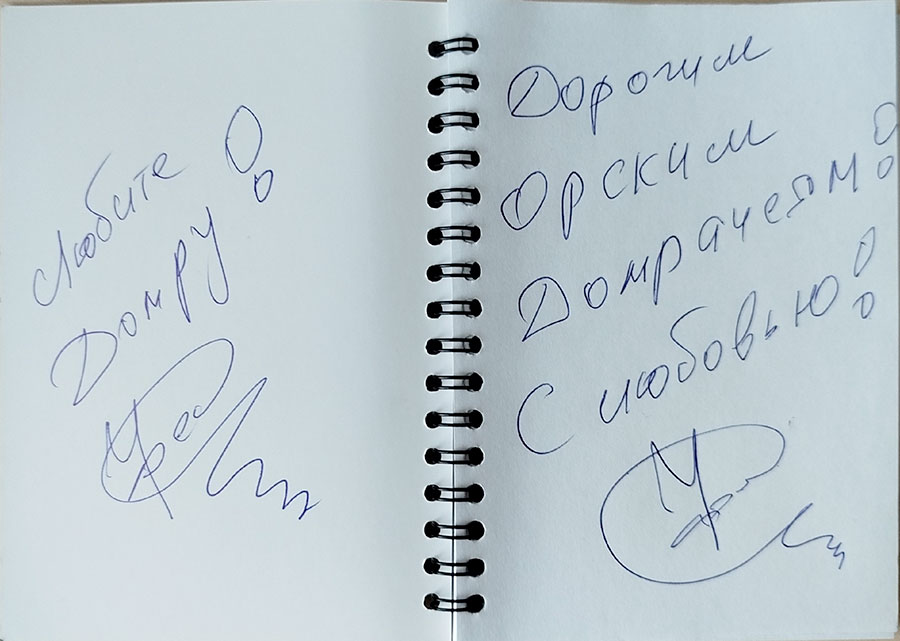 Любите
Домру!
Дорогим
Орским
Домрачеям!
С любовью!